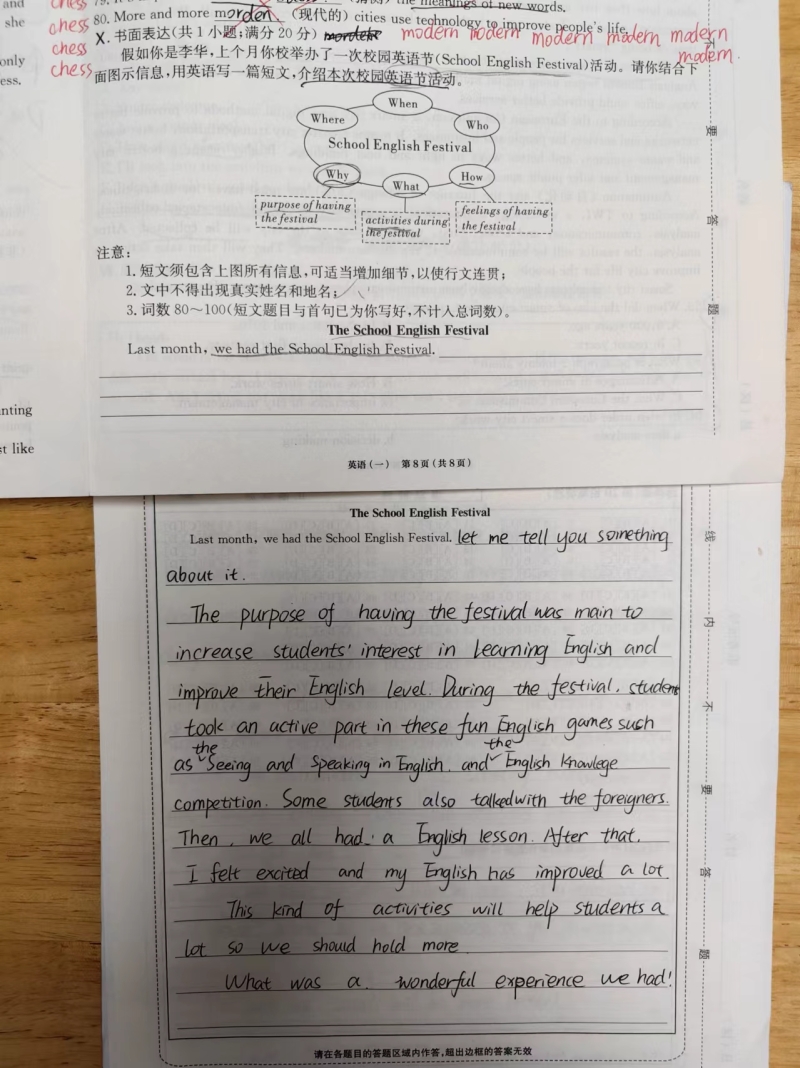 and
she
only
ess.
chess
chess
chess
chess
the meanings of new words.
80. More and more morden (现代的) cities use technology to improve people's life.
modern modern modern modern modern
modern
X. 书面表达(共 1 小题;满分 20 分)
假如你是李华,上个月你校举办了一次校园英语节(School English Festival)活动。请你结合下
面图示信息,用英语写一篇短文,介绍本次校园英语节活动。
When
Where
Who
School English Festival
Why
What
How
purpose of having
the festival
activities during
the festival
feelings of having
the festival
注意:
1. 短文须包含上图所有信息,可适当增加细节,以使行文连贯;
2. 文中不得出现真实姓名和地名;
3. 词数 80～100(短文题目与首句已为你写好,不计入总词数)。
The School English Festival
Last month, we had the School English Festival.
nting
t like
英语(一) 第 8 页(共 8 页)
不
要
答
题
The School English Festival
Last month, we had the School English Festival. let me tell you something
about it.
The purpose of having the festival was main to
increase students' interest in learning English and
improve their English level. During the festival, student
took an active part in these fun English games such
as the Seeing and Speaking in English, and the English knowlege
competition. Some students also talked with the foreigners.
Then, we all had a English lesson. After that,
I felt excited and my English has improved a lot
This kind of activities will help students a
lot so we should hold more
What was a wonderful experience we had!
请在各题目的答题区域内作答,超出边框的答案无效
线
内
不
要
答
题